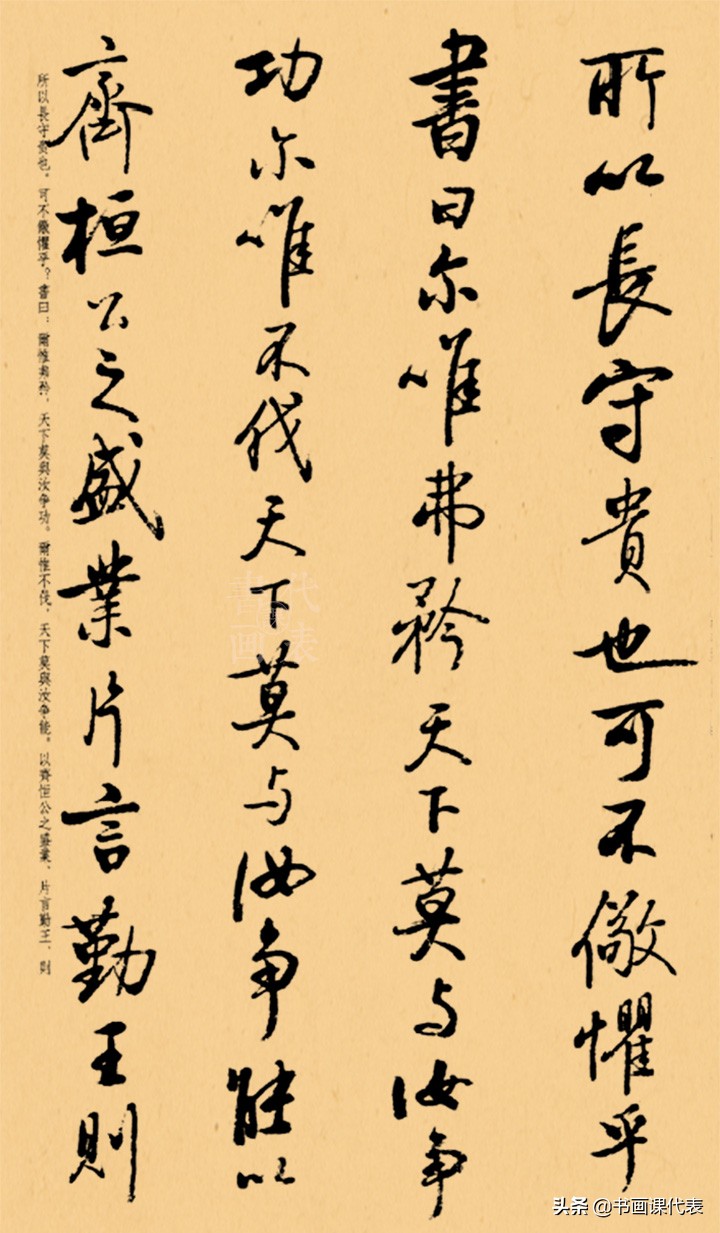 所以長守貴也可不儆懼乎
書曰尔唯弗矜天下莫与汝争
功尔唯不伐天下莫与汝争能以
齊桓公之盛業片言勤王則
所以長守貴也。可不儆懼乎?書曰:爾惟弗矜,天下莫與汝争功。爾惟不伐,天下莫與汝争能。以齊恒公之盛業,片言勤王,則
头条 @书画课代表